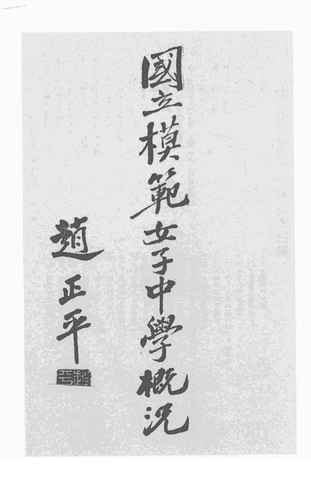 國立模範女子中學概況
趙正平